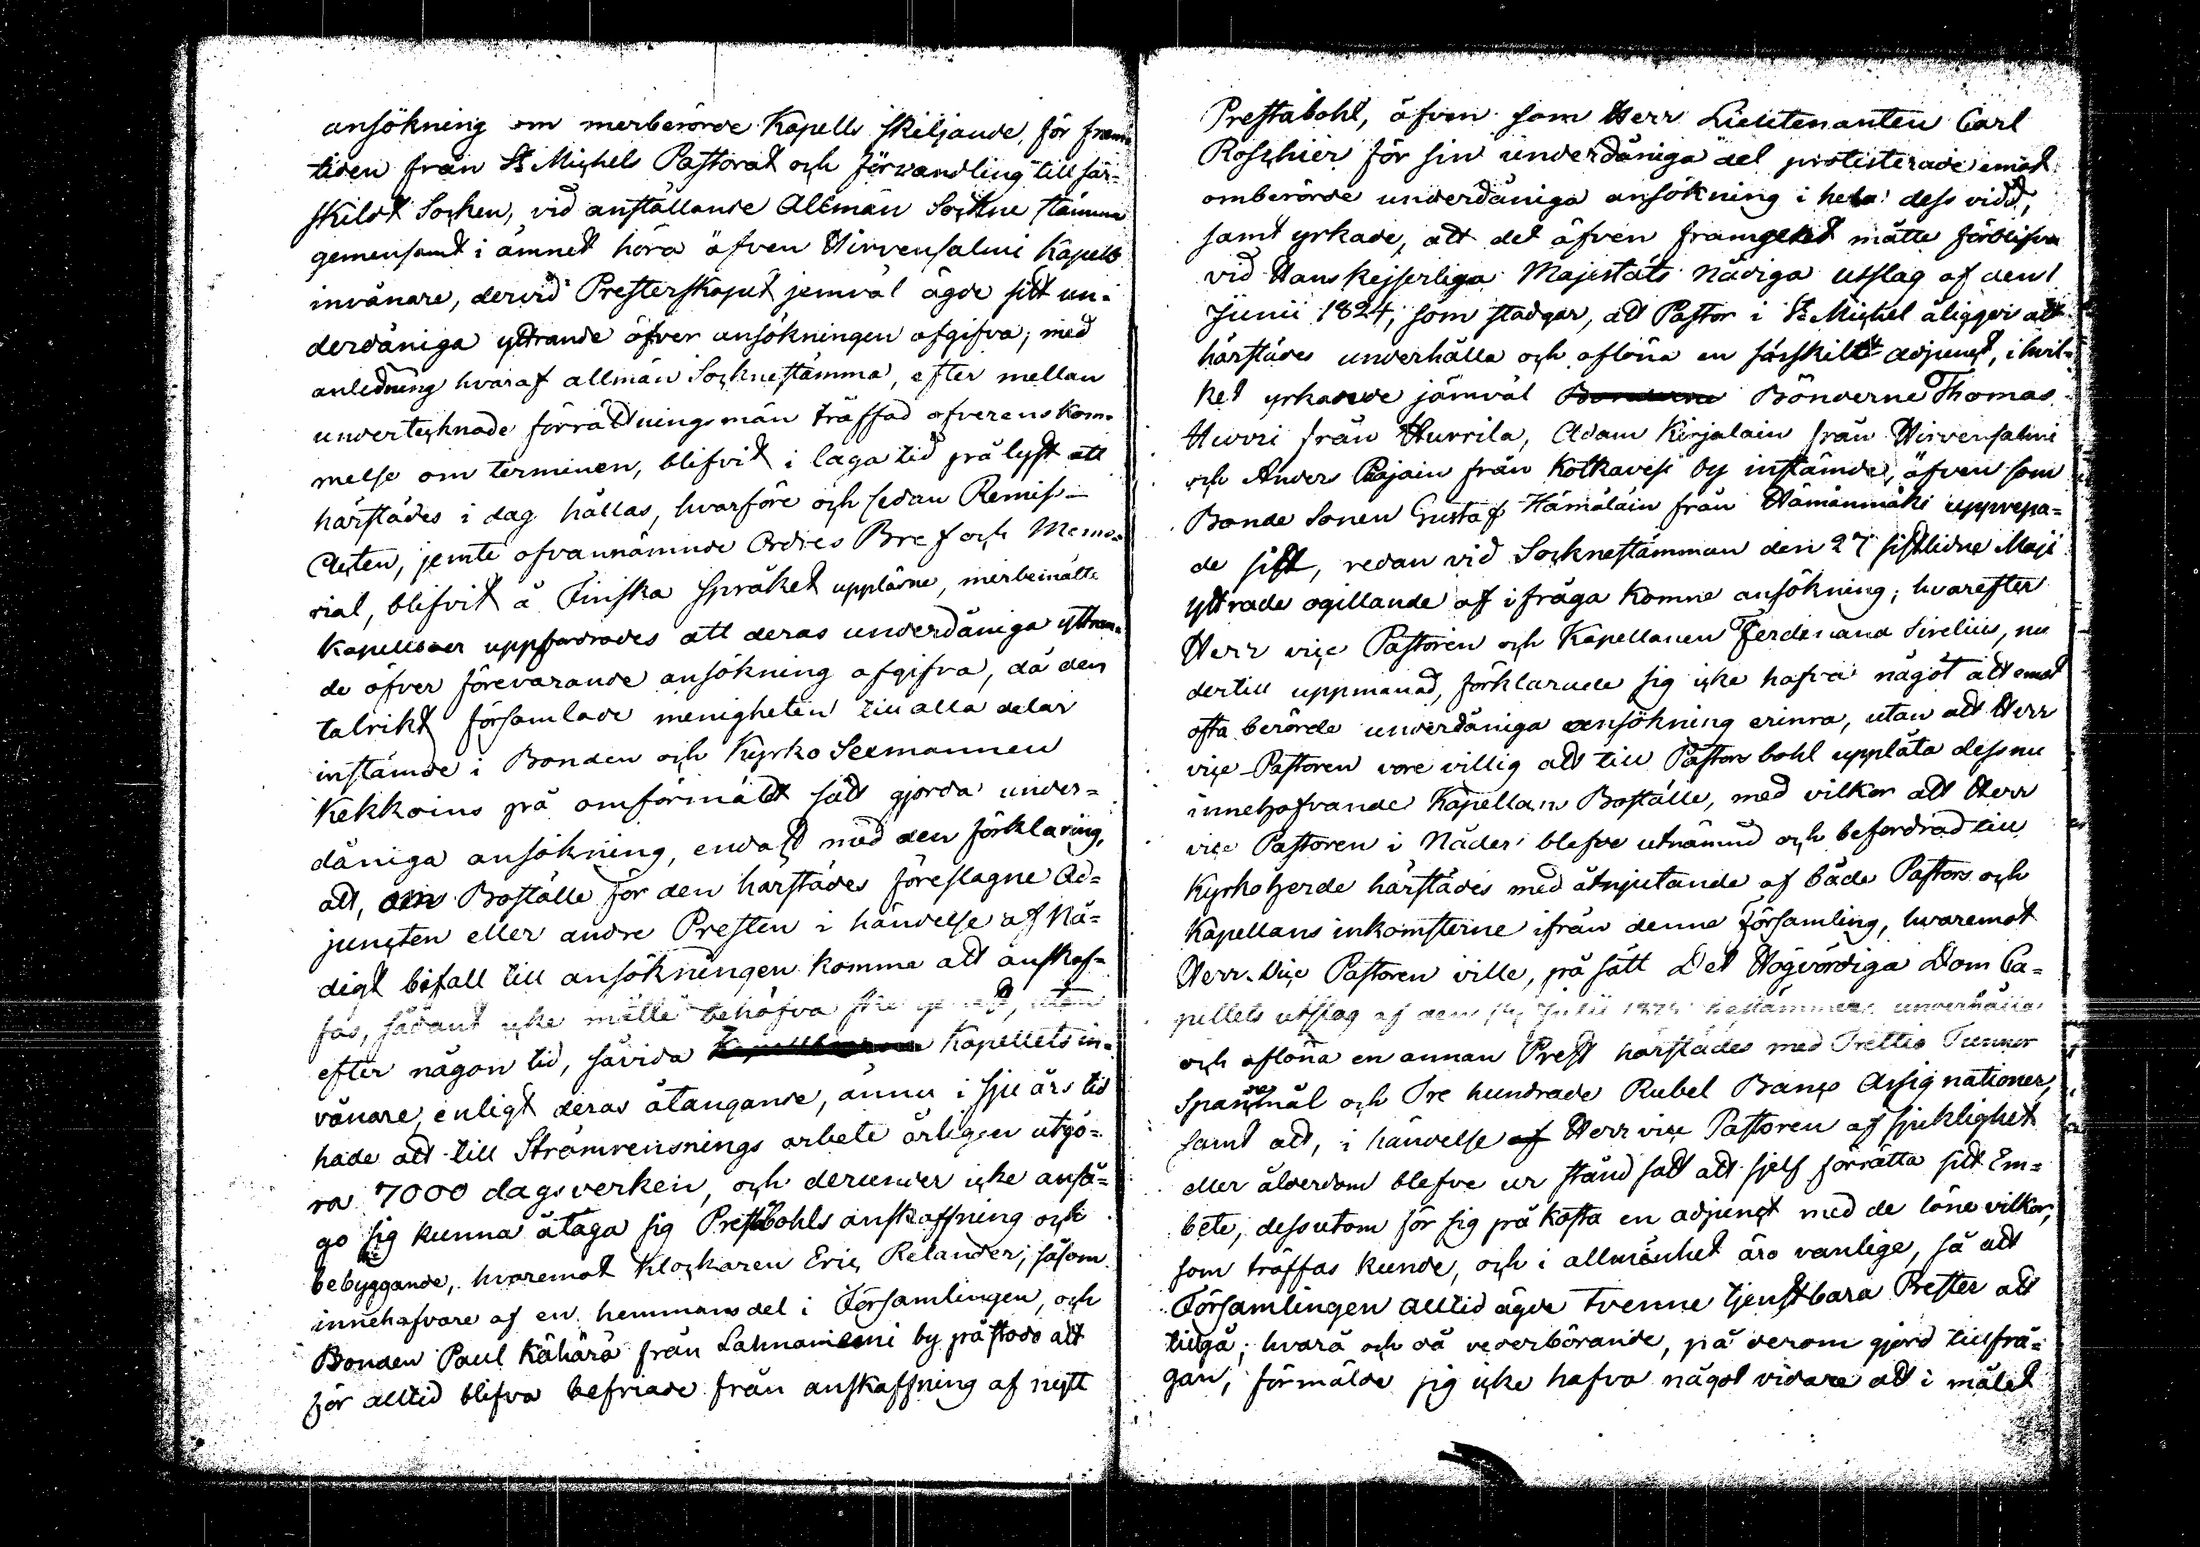 ansökning om merberörde Kapells skiljande, för fram-
tiden från St Michels Pastorat och förvandling till sär-
skildt Socken, vid anställande Allmän Sockne stämma
gemensamt i ämnet höra äfven Hirvensalmi Kapells
invånare, dervid Presterskapet jemväl ägde sitt un-
derdåniga yttrande öfver ansökningen afgifva; med
anledning hvaraf allmän Socknestämma, efter mellan
undertecknade förrättningsmän träffad öfverenskom-
melse om terminen, blifvit i laga tid pålyst att
härstädes i dag hållas, hvarföre och sedan Remiss-
Acten, jemte ofvannämnde Ordres Bref och Memo-
rial, blifvit å Finska Språket uppläsne, merbemälte
Kapelboer uppfordrades att deras underdåniga yttran-
de öfver förevarande ansökning afgifva, då den
talrikt församlade menigheten till alla delar
instämde i Bonden och Kyrko Sexmannen
Kekkoins på omförmäldt sätt gjorda under-
dåniga ansökning, endast med den förklaring,
att, om Boställe för den härstädes föreslagne Ad-
juncten eller andre Presten i händelse af Nå-
digt bifall till ansökningen komme att anskaf-
fas, sådant icke måtte behöfva ske genast, utan
efter någon tid, såvida Kapellets in-
vånare, enligt deras åtagande, ännu i sju års tid
hade att till Strömrensnings arbete årligen utgö-
ra 7000 dagsverken, och derunder icke anså-
go sig kunna åtaga sig Prestbohls anskaffning och
bebyggande, hvaremot Klockaren Eric Relander, såsom
innehafvare af en hemmansdel i Församlingen, och
Bonden Paul Kähärä från Lahnaniemi by påstodo att
för alltid blifva befriade från anskaffning af nytt
Prestabohl, äfven som Herr Lieutenanten Carl
Roschier för sin underdåniga del protesterade emot
omberörde underdåniga ansökning i hela dess vidd,
samt yrkade, att det äfven framgent måtte förblifva
vid Hans Kejserliga Majestäts Nådiga utslag af den 1
Junii 1824, som stadgar, att Pastor i St Michel åligger att
härstädes underhålla och aflöna en särskildt adjunct, i hvil-
ket yrkande jämväl Bönderne Thomas
Hurri från Hurrila, Adam Kirjalain från Hirvensalmi
och Anders Pajain från Kotkavesi by instämde, äfven som
Bonde Sonen Gustaf Hämäläin från Hämänmäki upprepa-
de sitt, redan vid Socknestämman den 27 sistlidne Maji
yttrade ogillande af ifråga komne ansökning; hvarefter
Herr vice Pastoren och Kapellanen Ferdinand Sirelius, nu
dertill uppmanad, förklarade sig icke hafva något att emot
ofta berörde underdåniga ansökning erinra, utan att Herr
vice Pastoren vore villig att till Pastors bohl uppläta dess nu
innehafvande Kapellans Boställe, med vilkor att Herr
vice Pastoren i Nåder blefve utnämnd och befordrad till
Kyrkoherde härstädes med åtnjutande af både Pastors och
Kapellans inkomsterne ifrån denne församling, hvaremot
Herr Vice Pastoren ville, på sätt Det Högvördiga Dom Ca-
pitlets utslag af den Julii bestämmer, underhålla
och aflöna en annan Prest härstädes med Trettio Tunnor
Spannemål och Tre hundrade Rubel Banco Assignationer,
samt att, i händelse af Herr vice Pastoren af sjuklighet
eller ålderdom blefve ur stånd satt att sjelf förrätta sitt Em-
bete, dessutom för sig på kosta en adjunct med de lönevilkor,
som träffas kunde, och i allmänhet äro vanlige, så att
Församlingen alltid ägde tvenne tjenstbara Prester att
tillgå; hvarå och då vederbörande, på derom gjord tillfrå-
gan, förmälde sig icke hafva något vidare att i målet